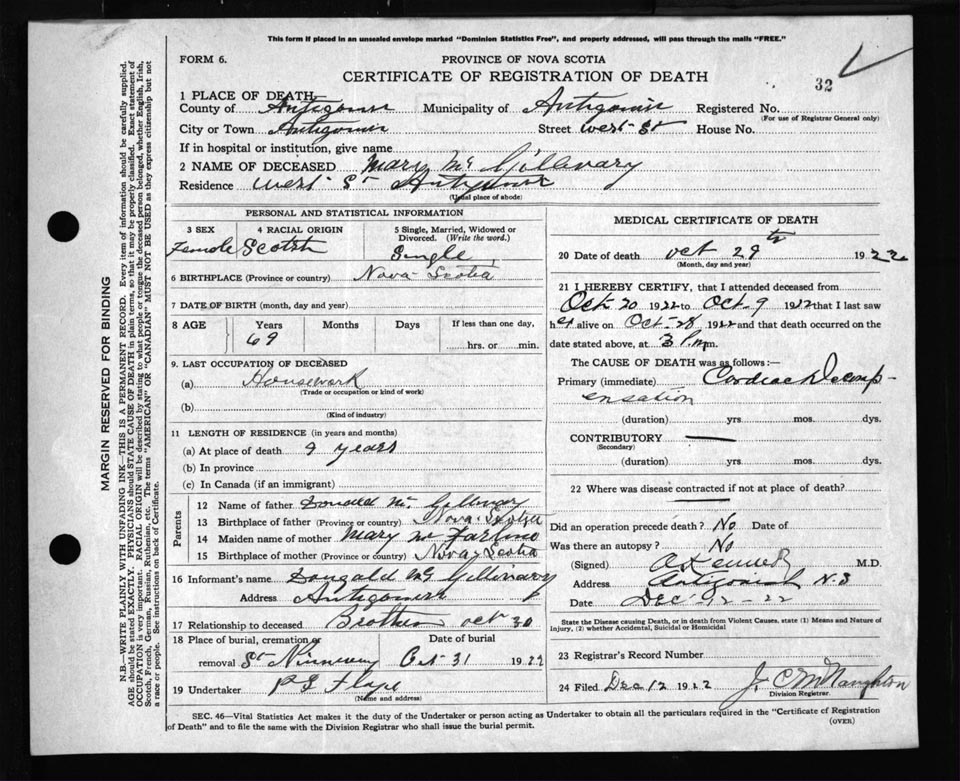 This form if placed in an unsealed envelope marked "Dominion Statistics Free", and properly addressed, will pass through the mails "FREE."
FORM 6.
PROVINCE OF NOVA SCOTIA
CERTIFICATE OF REGISTRATION OF DEATH
32
1 PLACE OF DEATH
County of Antigonish Municipality of Antigonish Registered No.
(For use of Registrar General only)
City or Town Antigonish Street West St House No.
If in hospital or institution, give name
2 NAME OF DECEASED Mary Mc Gillivary
Residence West St Antigonish
(Usual place of abode)
PERSONAL AND STATISTICAL INFORMATION
3 SEX Female
4 RACIAL ORIGIN Scotch
5 Single, Married, Widowed or Divorced. (Write the word.) Single
6 BIRTHPLACE (Province or country) Nova Scotia
7 DATE OF BIRTH (month, day and year)
8 AGE Years Months Days If less than one day,
69 hrs. or min.
9. LAST OCCUPATION OF DECEASED
(a) Housework
(Trade or occupation or kind of work)
(b)
(Kind of industry)
11 LENGTH OF RESIDENCE (in years and months)
(a) At place of death 9 years
(b) In province
(c) In Canada (if an immigrant)
Parents
12 Name of father Donald Mc Gillivary
13 Birthplace of father (Province or country) Nova Scotia
14 Maiden name of mother Mary
15 Birthplace of mother (Province or country) Nova Scotia
16 Informant's name Dougald Mc Gillivary
Address Antigonish
17 Relationship to deceased Brother Oct 30
18 Place of burial, cremation or removal St Ninian
Date of burial Oct 31 1922
19 Undertaker
(Name and address)
MEDICAL CERTIFICATE OF DEATH
20 Date of death Oct 29th 1922
(Month, day and year)
21 I HEREBY CERTIFY, that I attended deceased from
Oct 20 1922 to Oct 9 1922 that I last saw
her alive on Oct 28 1922 and that death occurred on the
date stated above, at 3 P.m.
The CAUSE OF DEATH was as follows :—
Primary (immediate) Cardiac Decomp-
ensation
(duration) yrs. mos. dys.
CONTRIBUTORY —
(Secondary)
(duration) yrs. mos. dys.
22 Where was disease contracted if not at place of death?
Did an operation precede death? No Date of
Was there an autopsy? No
(Signed) Kennedy M.D.
Address Antigonish N.S
Date Dec 12-22
State the Disease causing Death, or in death from Violent Causes, state (1) Means and Nature of
Injury, (2) whether Accidental, Suicidal or Homicidal
23 Registrar's Record Number
24 Filed Dec 12 1922 J. C McNaughton
Division Registrar.
SEC. 46—Vital Statistics Act makes it the duty of the Undertaker or person acting as Undertaker to obtain all the particulars required in the "Certificate of Registration
of Death" and to file the same with the Division Registrar who shall issue the burial permit.
(OVER)
MARGIN RESERVED FOR BINDING
N.B.—WRITE PLAINLY WITH UNFADING INK—THIS IS A PERMANENT RECORD. Every item of information should be carefully supplied.
AGE should be stated EXACTLY. PHYSICIANS should STATE CAUSE OF DEATH in plain terms, so that it may be properly classified. Exact statement of
OCCUPATION is very important. RACIAL ORIGIN will be described by stating to what people or tongue the deceased person belonged, whether English, Irish,
Scotch, French, German, Russian, Ruthenian, etc. The terms "AMERICAN" OR "CANADIAN" MUST NOT BE USED as they express citizenship but not
a race or people. See instructions on back of Certificate.